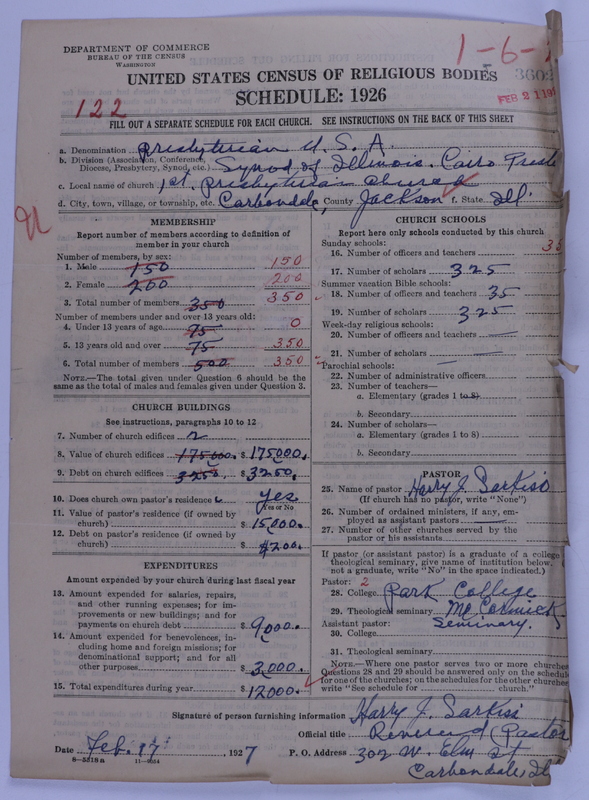 DEPARTMENT OF COMMERCE
BUREAU OF THE CENSUS
WASHINGTON
1-6-
UNITED STATES CENSUS OF RELIGIOUS BODIES
SCHEDULE: 1926
122
FEB 21
FILL OUT A SEPARATE SCHEDULE FOR EACH CHURCH. SEE INSTRUCTIONS ON THE BACK OF THIS SHEET
a. Denomination Presbyterian U. S. A.
b. Division (Association, Conference, Diocese, Presbytery, Synod, etc.) Synod of Illinois. Cairo Presb
c. Local name of church 1st. Presbyterian Church
d. City, town, village, or township, etc. Carbondale, County Jackson f. State Ill.
MEMBERSHIP
Report number of members according to definition of
member in your church
Number of members, by sex:
1. Male 150 150
2. Female 200 200
3. Total number of members 350 350
Number of members under and over 13 years old:
4. Under 13 years of age 75 0
5. 13 years old and over 75 350
6. Total number of members 500 350
NOTE.—The total given under Question 6 should be the
same as the total of males and females given under Question 3.
CHURCH BUILDINGS
See instructions, paragraphs 10 to 12
7. Number of church edifices 2
8. Value of church edifices 175000. $ 175000.
9. Debt on church edifices 3250 $ 3250.
10. Does church own pastor's residence yes
(Yes or No)
11. Value of pastor's residence (if owned by
church) $ 15,000.
12. Debt on pastor's residence (if owned by
church) $ $200.
EXPENDITURES
Amount expended by church during last fiscal year
13. Amount expended for salaries, repairs,
and other running expenses; for im-
provements or new buildings; and for
payments on church debt $ 9,000.
14. Amount expended for benevolences, in-
cluding home and foreign missions; for
denominational support; and for all
other purposes $ 3,000.
15. Total expenditures during year $ 12000.
CHURCH SCHOOLS
Report here only schools conducted by this church
Sunday schools:
16. Number of officers and teachers 35
17. Number of scholars 325
Summer vacation Bible schools:
18. Number of officers and teachers 35
19. Number of scholars 325
Week-day religious schools:
20. Number of officers and teachers
21. Number of scholars
Parochial schools:
22. Number of administrative officers
23. Number of teachers—
a. Elementary (grades 1 to 8)
b. Secondary
24. Number of scholars—
a. Elementary (grades 1 to 8)
b. Secondary
PASTOR
25. Name of pastor Harry J. Sarkiss
(If church has no pastor, write "None")
26. Number of ordained ministers, if any, em-
ployed as assistant pastors
27. Number of other churches served by the
pastor or his assistants
If pastor (or assistant pastor) is a graduate of a college
theological seminary, give name of institution below. (
not a graduate, write "No" in the space indicated.)
Pastor: 2
28. College Park College
29. Theological seminary McCormick
Assistant pastor: Seminary.
30. College
31. Theological seminary
NOTE.—Where one pastor serves two or more churches
Questions 28 and 29 should be answered only on the schedule
for one of the churches; on the schedules for the other churches
write "See schedule for church."
Signature of person furnishing information Harry J. Sarkiss
Official title Reverend (Pastor
Date Feb. 17 1927 P. O. Address 302 W. Elm St
8-5518a 11-9054
Carbondale, Ill